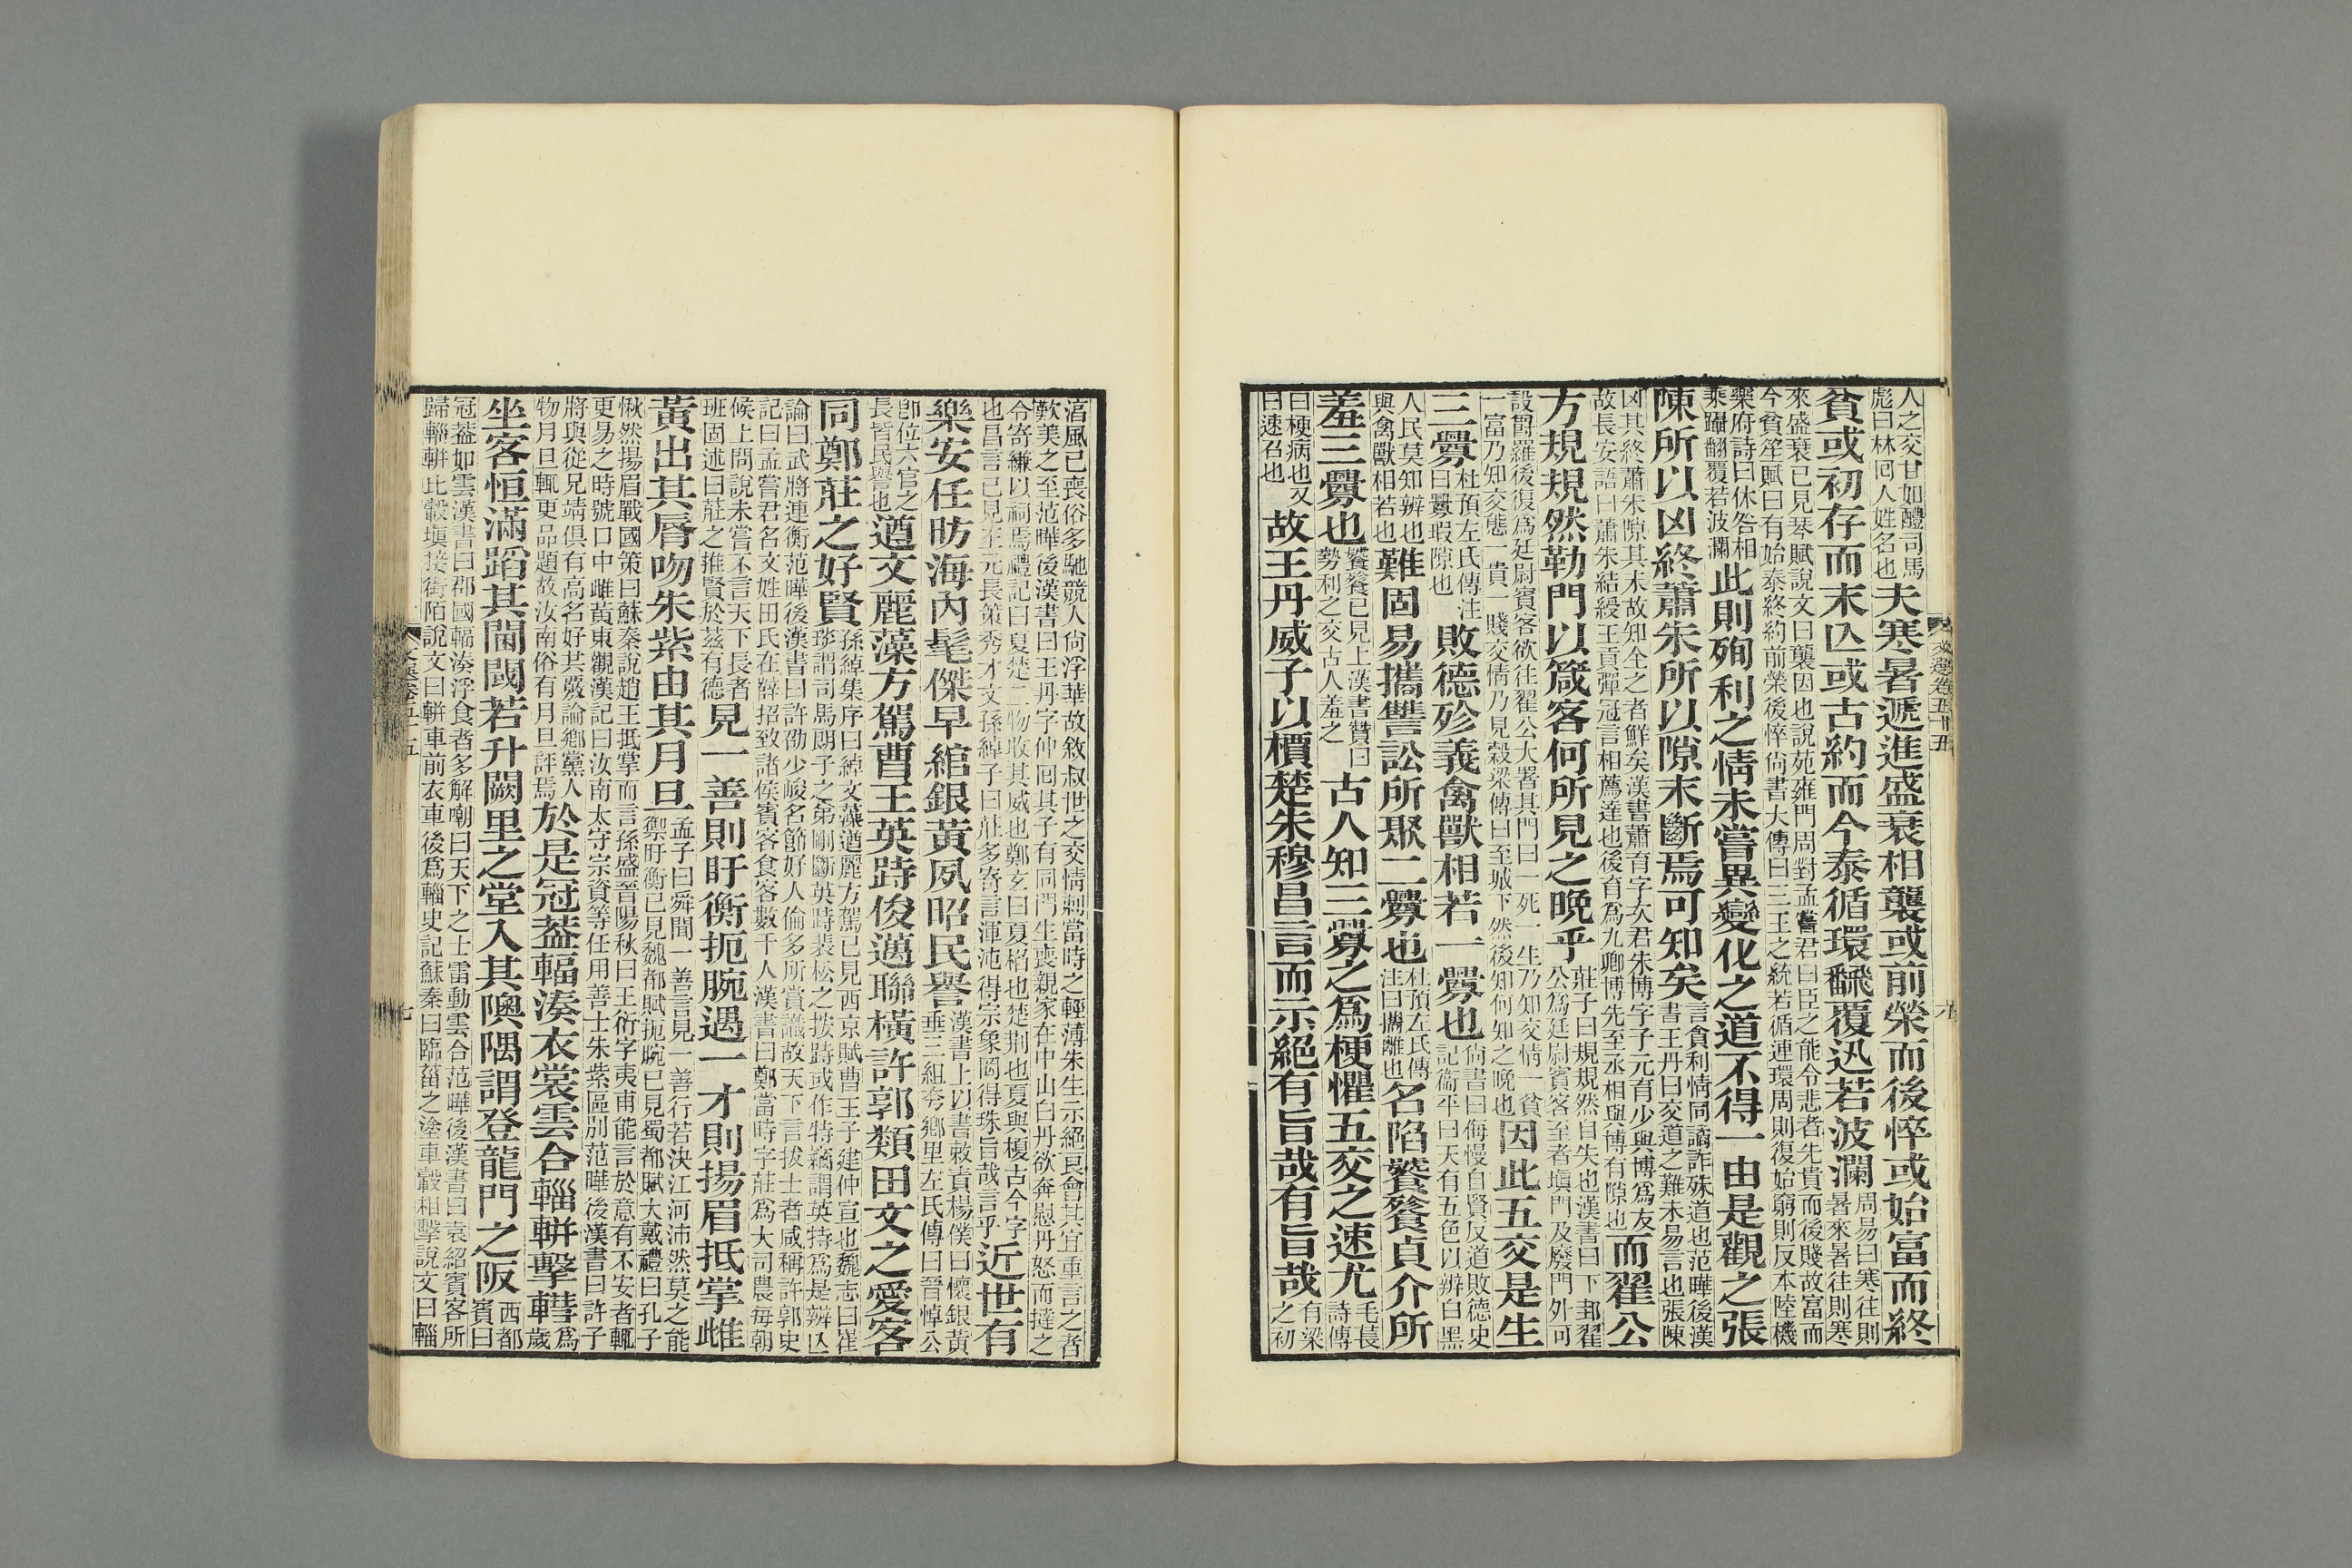 人之交甘如醴司馬
彪曰林囘人姓名也
夫寒暑遞進盛衰相襲或前榮而後悴或始富而終
貧或初存而末亾或古約而今泰循環飜覆迅若波瀾
周易曰寒往則
暑來暑往則寒
來盛衰已見琴賦說文曰襲因也說苑雍門周對孟嘗君曰臣之能令悲者先貴而後賤故富而
今貧笙賦曰有始泰終約前榮後悴尙書大傳曰三王之統若循連環周則復始窮則反本陸機
樂府詩曰休咎相
乘躡翻覆若波瀾
此則殉利之情未嘗異變化之道不得一由是觀之張
陳所以凶終蕭朱所以隙末斷焉可知矣
言貪利情同譎詐殊道也范曄後漢
書王丹曰交道之難未易言也張陳
凶其終蕭朱隙其末故知全之者鮮矣漢書蕭育字次君朱博字子元育少與博爲友
故長安語曰蕭朱結綬王貢彈冠言相薦達也後育爲九卿博先至丞相與博有隙也
而翟公
方規規然勒門以箴客何所見之晚乎
莊子曰規規然自失也漢書曰下邽翟
公爲廷尉賓客至者塡門及廢門外可
設罻羅後復爲廷尉賓客欲往翟公大署其門曰一死一生乃知交情一貧
一富乃知交態一貴一賤交情乃見穀梁傳曰至城下然後知何知之晚也
因此五交是生
三釁
杜預左氏傳注
曰釁瑕隙也
敗德殄義禽獸相若一釁也
尙書曰侮慢自賢反道敗德史
記衞平曰天有五色以辨白黑
人民莫知辨也
與禽獸相若也
難固易攜讐訟所聚二釁也
杜預左氏傳
注曰攜離也
名陷饕餮貞介所
羞三釁也
饕餮已見上漢書贊曰
勢利之交古人羞之
古人知三釁之爲梗懼五交之速尤
毛萇
詩傳
曰梗病也又
曰速召也
故王丹威子以檟楚朱穆昌言而示絕有旨哉有旨哉
有梁
之初
文選卷五十五
淳風已喪俗多馳競人尙浮華故敘叔世之交情刺當時之輕薄朱生示絕良會其宜重言之者
歎美之至范曄後漢書曰王丹字仲囘其子有同門生喪親家在中山白丹欲奔慰丹怒而撻之
令寄縑以祠焉禮記曰夏楚二物收其威也鄭玄曰夏稻也楚荆也夏與榎古今字
也昌言已見王元長策秀才文孫綽子曰莊多寄言渾沌得宗象罔得珠旨哉言乎
近世有
樂安任昉海內髦傑早綰銀黃夙昭民譽
漢書上以書敕責楊僕曰懷銀黃
垂三組夸鄉里左氏傳曰晉悼公
卽位六官之
長皆民譽也
遒文麗藻方駕曹王英跱俊邁聯橫許郭類田文之愛客
同鄭莊之好賢
孫綽集序曰綽文藻遒麗方駕已見西京賦曹王子建仲宣也魏志曰崔
琰謂司馬朗子之弟剛斷英跱裴松之按跱或作特竊謂英特爲是辨亾
論曰武將連衡范曄後漢書曰許劭少峻名節好人倫多所賞識故天下言拔士者咸稱許郭史
記曰孟嘗君名文姓田氏在薛招致諸侯賓客食客數千人漢書曰鄭當時字莊爲大司農每朝
候上問說未嘗不言天下長者
班固述曰莊之推賢於茲有德
見一善則盱衡扼腕遇一才則揚眉抵掌雌
黃出其脣吻朱紫由其月旦
孟子曰舜聞一善言見一善行若決江河沛然莫之能
禦盱衡已見魏都賦扼腕已見蜀都賦大戴禮曰孔子
愀然揚眉戰國策曰蘇秦說趙王抵掌而言孫盛晉陽秋曰王衍字夷甫能言於意有不安者輒
更易之時號口中雌黃東觀漢記曰汝南太守宗資等任用善士朱紫區別范曄後漢書曰許子
將與從兄靖俱有高名好共覈論鄉黨人
物月旦輒更品題故汝南俗有月旦評焉
於是冠蓋輻湊衣裳雲合輜軿擊轊
爲
歲
坐客恒滿蹈其閫閾若升闕里之堂入其隩隅謂登龍門之阪
西都
賓曰
冠蓋如雲漢書曰郡國輻湊浮食者多解嘲曰天下之士雷動雲合范曄後漢書曰袁紹賓客所
歸輜軿比轂塡接街陌說文曰軿車前衣車後爲輜史記蘇秦曰臨菑之塗車轂相擊說文曰輜
七